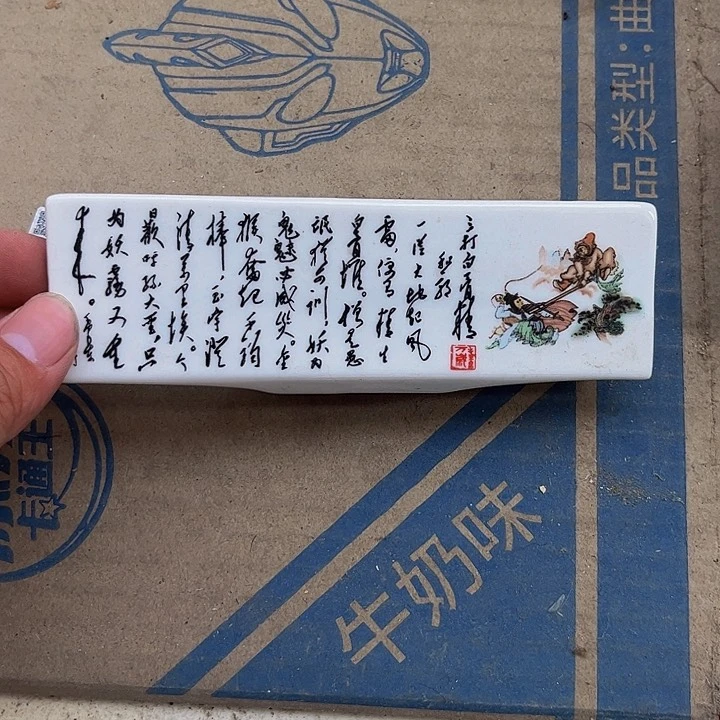 三打白骨精
一从大地起风
雷,便有精生
白骨堆。僧是愚
氓犹可训,妖为
鬼蜮必成灾。金
猴奋起千钧
棒,玉宇澄
清万里埃。今
日欢呼孙大圣,只
缘妖霧又重
来。
品类型:曲
牛奶味
卡通王